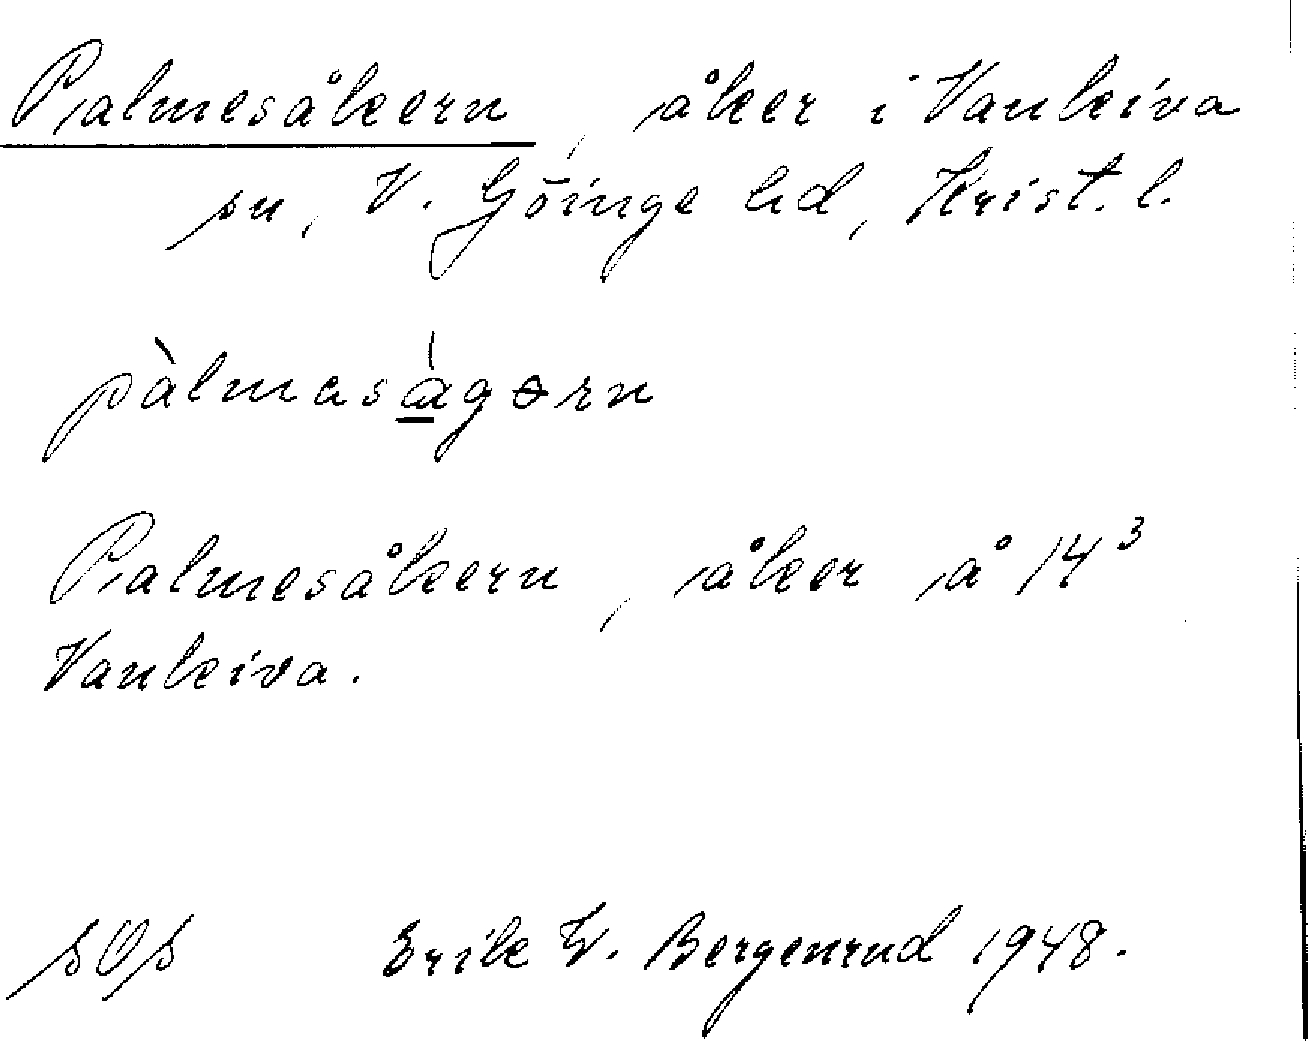 Palmesåkern, åker i Vankiva
sn, V. Göinge hd, Krist. l.
pàlmasa̲̍gərn
Palmesåkern, åker å 14³
Vankiva.
sOs Erik W. Bergenrud 1948.